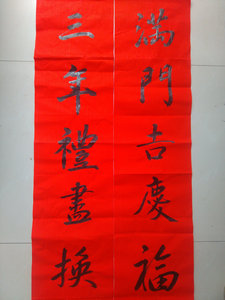 滿門吉慶福
三年禮盡換